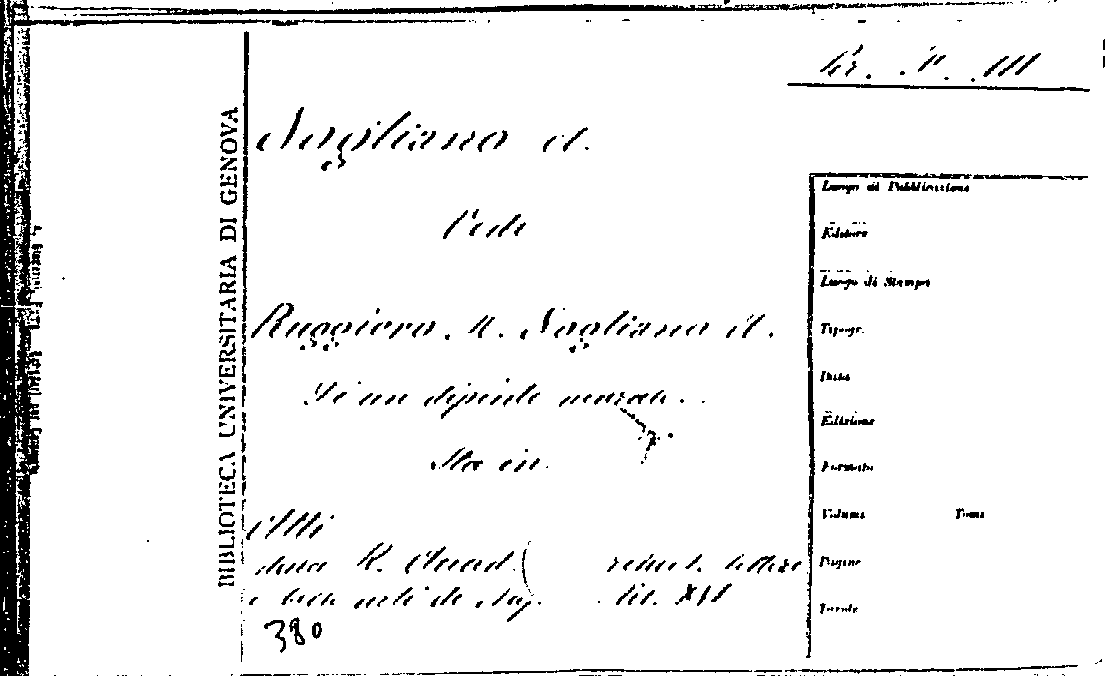 BIBLIOTECA UNIVERSITARIA DI GENOVA
Sogliano A.
Vedi
Ruggiero M. Sogliano A.
Di un dipinto murale.
Sta in
Atti
della R. Accad.
e belle arti di Nap. Vol. XVI
380
Luogo di Pubblicazione
Editore
Luogo di Stampa
Tipogr.
Data
Edizione
Formato
Volume Tomo
Pagine
Tavole